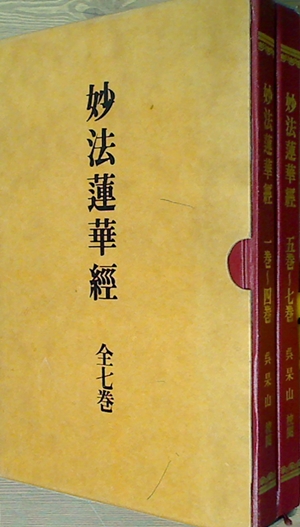 妙法蓮華經
全七巻
妙法蓮華經 一巻-四巻 呉杲山
妙法蓮華經 五巻-七巻 呉杲山